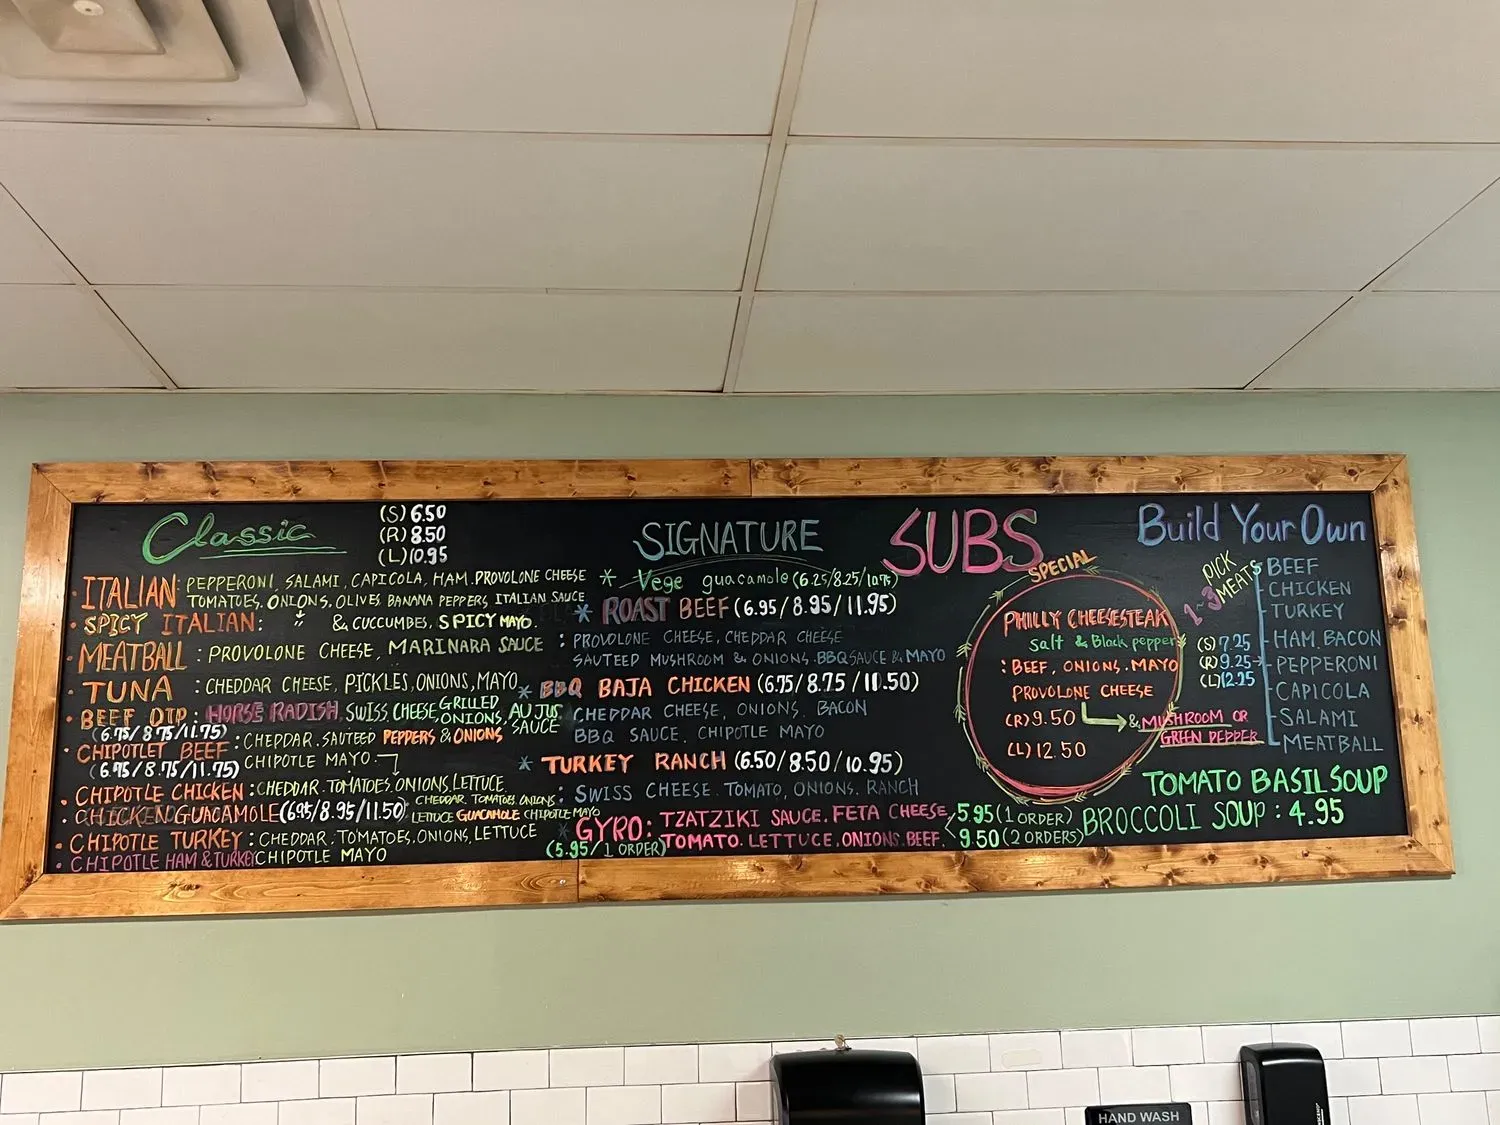 Classic
(S) 6.50
(R) 8.50
(L) 10.95
· ITALIAN: PEPPERONI, SALAMI, CAPICOLA, HAM, PROVOLONE CHEESE
TOMATOES, ONIONS, OLIVES, BANANA PEPPERS, ITALIAN SAUCE
· SPICY ITALIAN: & CUCCUMBES, SPICY MAYO.
· MEATBALL: PROVOLONE CHEESE, MARINARA SAUCE
· TUNA: CHEDDAR CHEESE, PICKLES, ONIONS, MAYO
· BEEF DIP: HORSE RADISH, SWISS CHEESE, GRILLED ONIONS, AU JUS SAUCE
(6.75/8.75/11.75)
· CHIPOTLET BEEF: CHEDDAR. SAUTEED PEPPERS & ONIONS
(6.75/8.75/11.75) CHIPOTLE MAYO
· CHIPOTLE CHICKEN: CHEDDAR. TOMATOES. ONIONS, LETTUCE.
· CHICKEN GUACAMOLE (6.95/8.95/11.50) CHEDDAR. TOMATOES. ONIONS.
LETTUCE GUACAMOLE CHIPOTLE MAYO
· CHIPOTLE TURKEY: CHEDDAR. TOMATOES, ONIONS, LETTUCE
· CHIPOTLE HAM & TURKEY CHIPOTLE MAYO
SIGNATURE SUBS
* Vege guacamole (6.25/8.25/10.75)
* ROAST BEEF (6.95/8.95/11.95)
: PROVOLONE CHEESE, CHEDDAR CHEESE
SAUTEED MUSHROOM & ONIONS. BBQ SAUCE & MAYO
* BBQ BAJA CHICKEN (6.75/8.75/11.50)
: CHEDDAR CHEESE, ONIONS, BACON
BBQ SAUCE, CHIPOTLE MAYO
* TURKEY RANCH (6.50/8.50/10.95)
: SWISS CHEESE. TOMATO, ONIONS. RANCH
* GYRO: TZATZIKI SAUCE. FETA CHEESE, 5.95 (1 ORDER)
(5.95/1 ORDER) TOMATO. LETTUCE. ONIONS. BEEF. 9.50 (2 ORDERS)
SPECIAL
PHILLY CHEESESTEAK
Salt & Black pepper
: BEEF, ONIONS, MAYO
PROVOLONE CHEESE
(R) 9.50 & MUSHROOM OR
GREEN PEPPER
(L) 12.50
Build Your Own
PICK
1~3 MEATS
(S) 7.25
(R) 9.25
(L) 12.25
BEEF
CHICKEN
TURKEY
HAM. BACON
PEPPERONI
CAPICOLA
SALAMI
MEATBALL
TOMATO BASIL SOUP
BROCCOLI SOUP: 4.95
HAND WASH